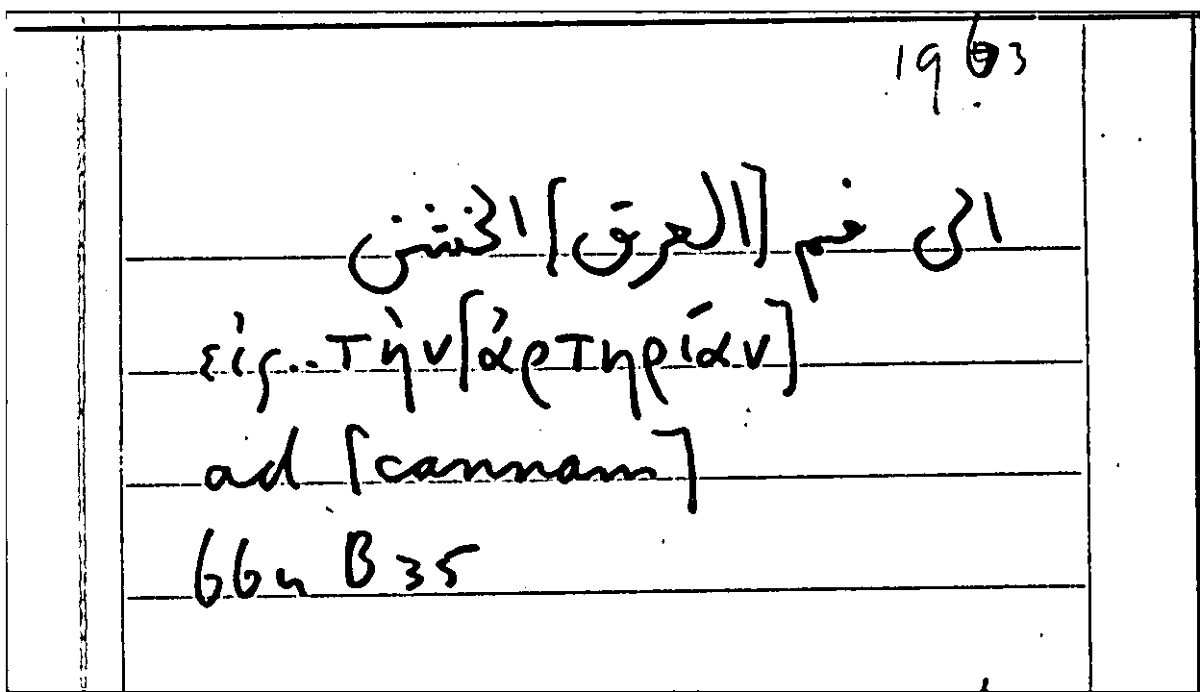 1963
الى فم [العرق] الخشن
εἰς.. τὴν [ἀρτηρίαν]
ad [cannam]
664 B 35